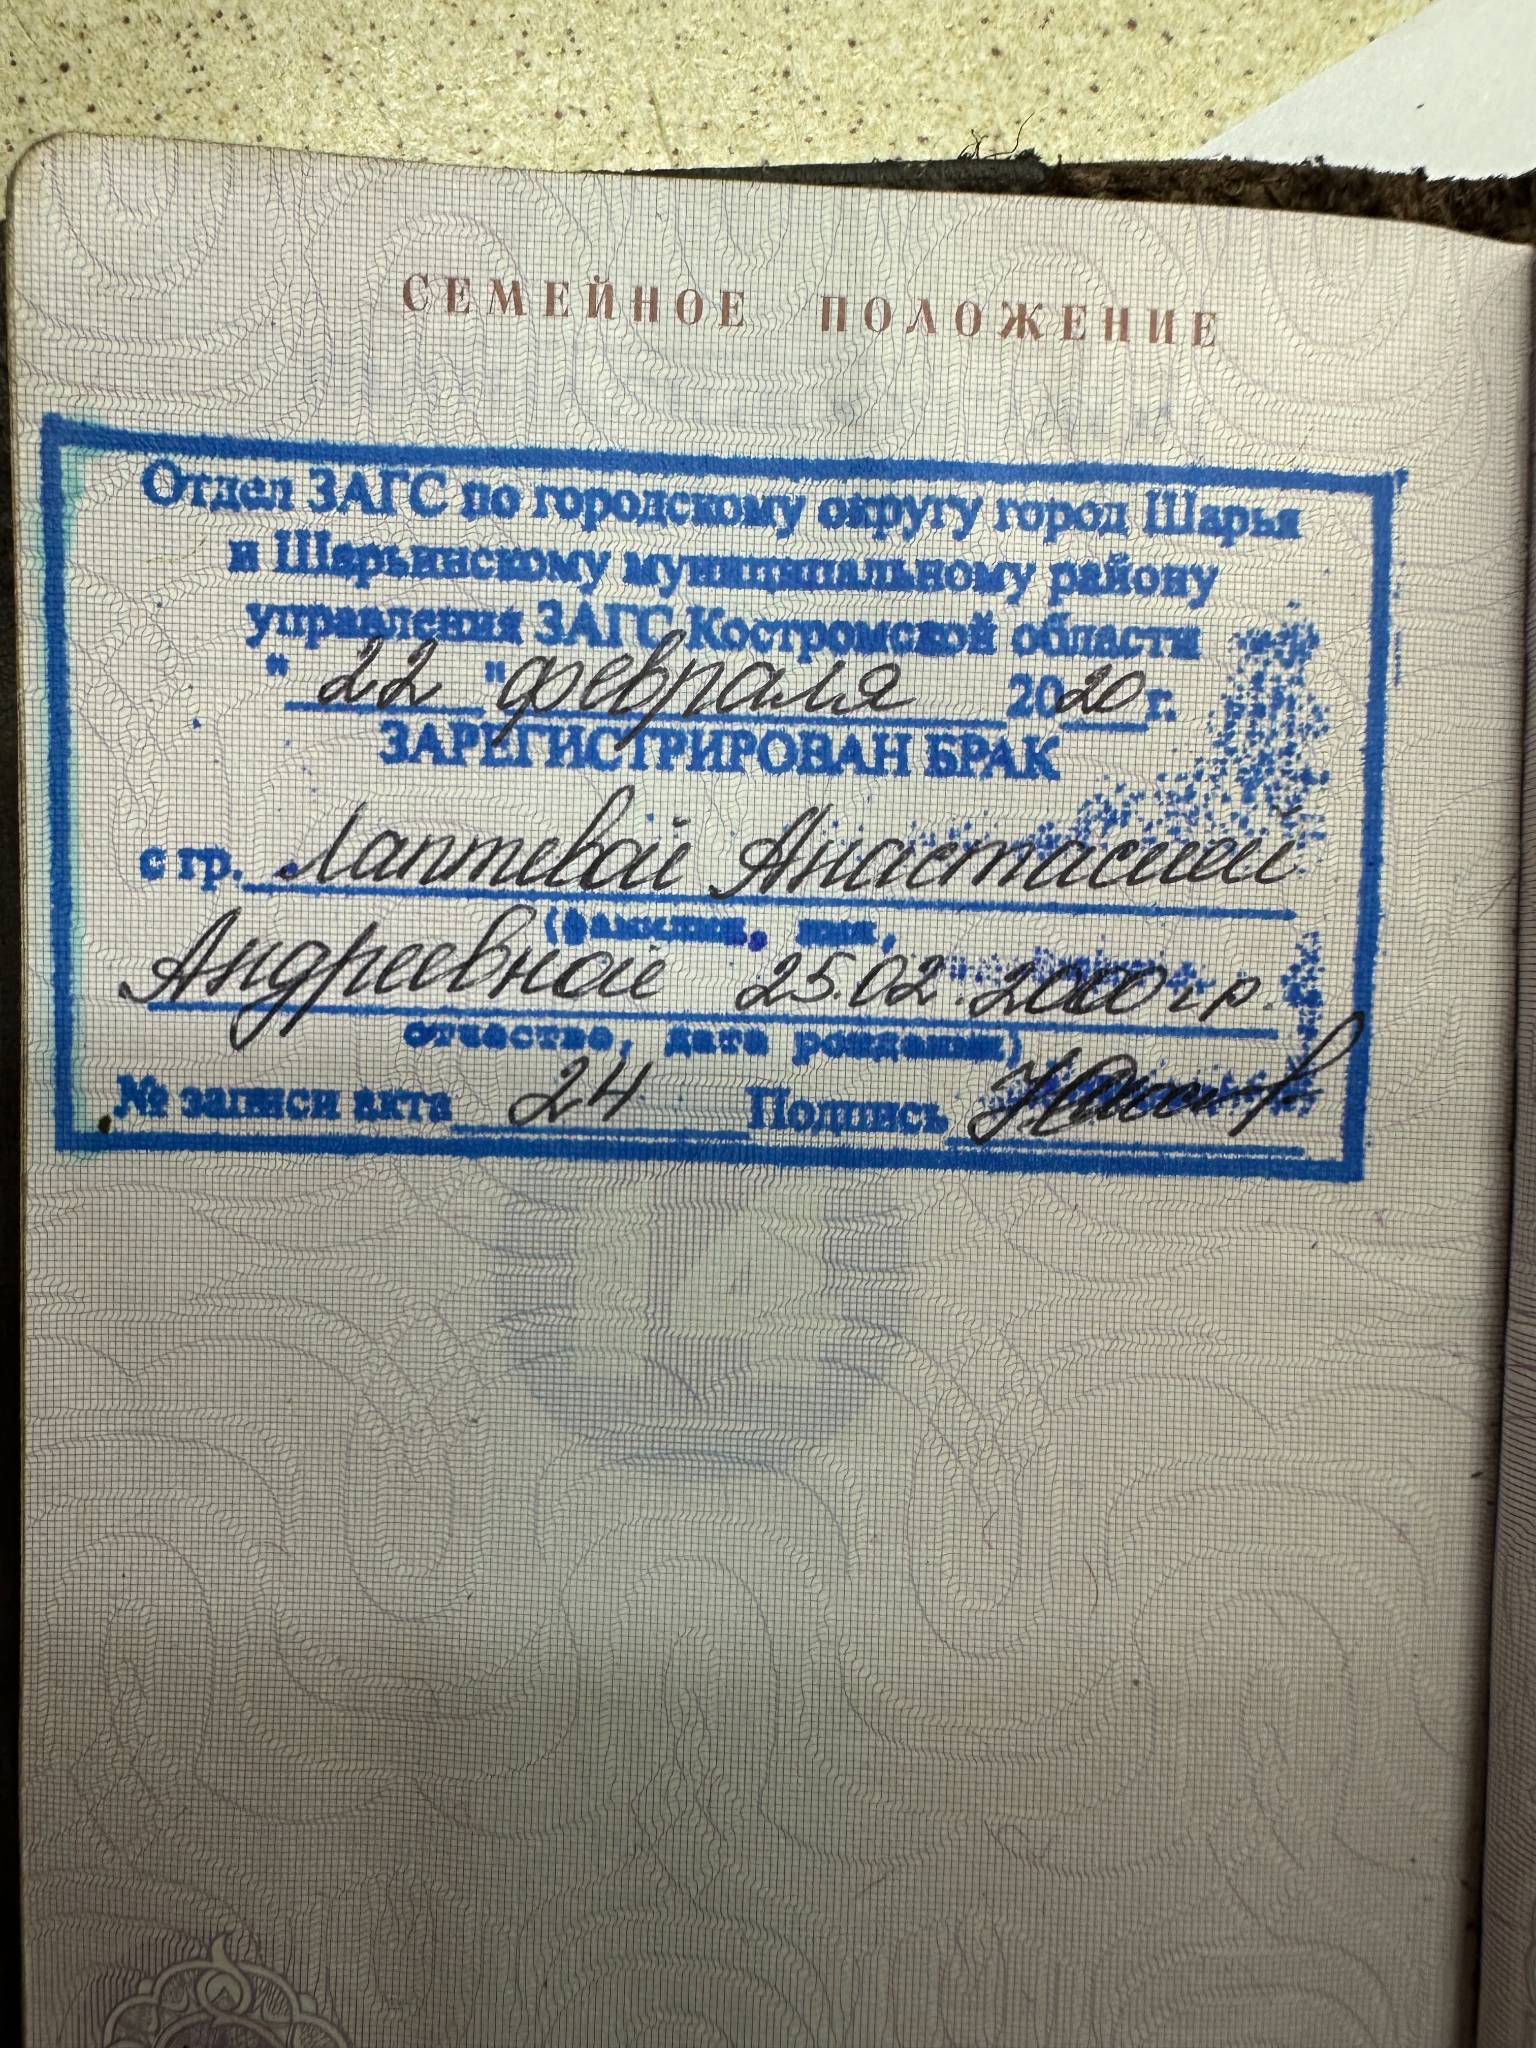 СЕМЕЙНОЕ ПОЛОЖЕНИЕ
Отдел ЗАГС по городскому округу город Шарья
и Шарьинскому муниципальному району
управления ЗАГС Костромской области
" 22 " февраля 2020 г.
ЗАРЕГИСТРИРОВАН БРАК
с гр. Лаптевой Анастасией
(фамилия, имя,
Андреевной 25.02.2000 г.р.
отчество, дата рождения)
№ записи акта 24 Подпись